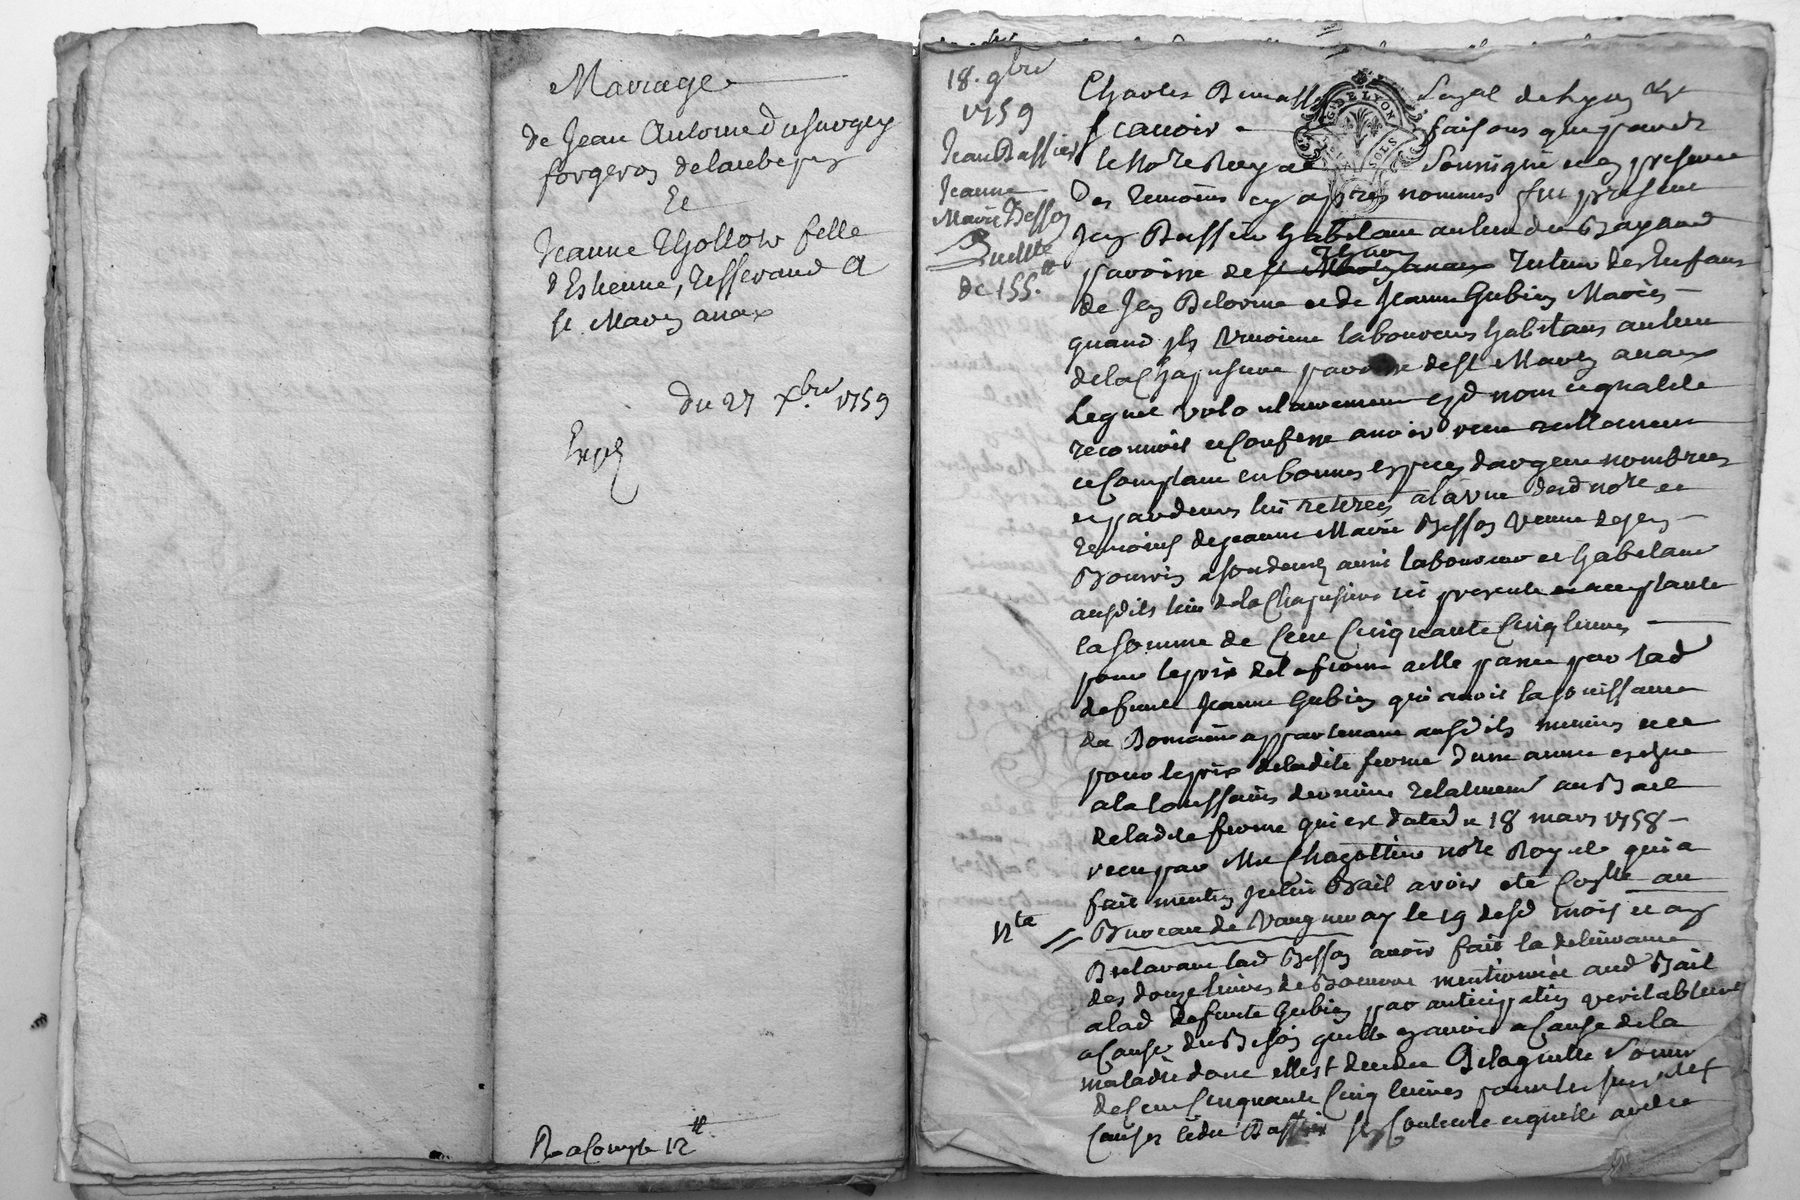 Mariage
de Jean Antoine dusurgey
forgeron delaubepin
Et
Jeanne Thollow fille
d'Estienne, Tisserand a
st. Martin anaux
du 27 xbre 1759
Exped
R a Compte 12 tt
18. 9bre
1759
Jean Bassier
Jeanne
Marie Besson
Quitte
de 155. tt
Charles
G. DE LYON
SOLS
Scavoir faisons que pardt
le Notre Royal soussigné et en presence
des temoins cy apres nommes fut present
Jean Bassier habitant au lieu du Bayard
paroisse de st Tuteur des Enfans
de Jean Delorme et de Jeanne Gubien Mariés
quand ils vivoient laboureurs habitans au lieu
de la Chapusiere paroisse de st Martin anaux
Lequel volontairement esd nom et qualité
reconnoit et Confesse avoir recu reellement
et Comptant en bonnes especes dargent nombrées
et par devers lui retirées ala vue desd notre et
temoins de Jeanne Marie Besson veuve de Jean
vivant laboureur et habitant
ausdits lieu de la Chapusiere ici presente et acceptante
la somme de Cent Cinquante Cinq livres
pour le prix de la ferme a elle passée par lad
defunte Jeanne Gubien qui avoit la jouissance
du Domaine appartenant ausdits mineurs et ce
pour le prix de ladite ferme d'une année echue
a la toussaint derniere relativement au Bail
de ladite ferme qui est daté du 18 mars 1758
recu par Me Chazottier notre Royal qui a
fait mention sur ledit Bail avoir eté Conllé au
12 te
Bureau de Vaugneray le 19 desd mois et an
Declarant lad Besson avoir fait la delivrance
des douze livres de Beurre mentionnée aud Bail
a lad defunte Gubien par anticipation veritablement
a Cause du Besoin quelle en avoit a Cause de la
maladie dont elle est decedée De laquelle somme
de Cent Cinquante Cinq livres pour les susdites
Causes ledit Bassier se Contente et quitte